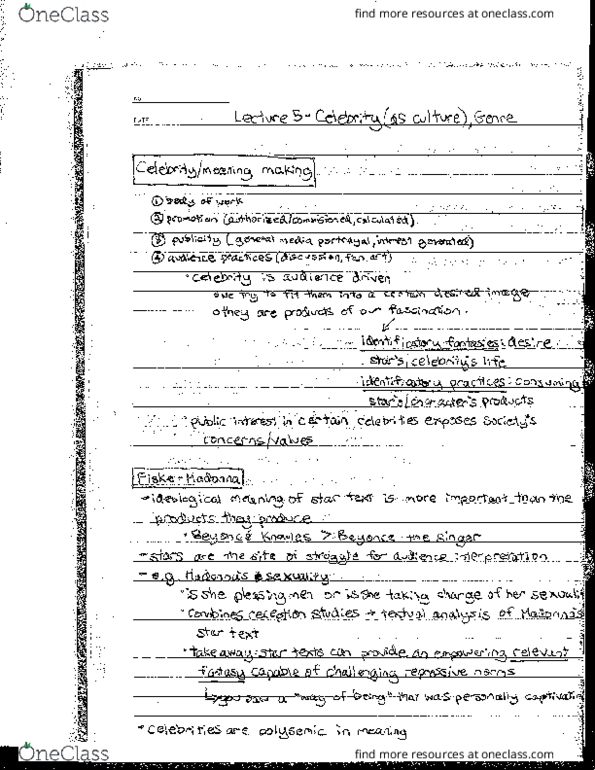 OneClass
find more resources at oneclass.com
No.
DATE
Lecture 5 - Celebrity (as culture), Genre
Celebrity/meaning making
① body of work
② promotion (authorized/commisioned, calculated)
③ publicity (general media portrayal, interest generated)
④ audience practices (discussion, fan art)
• celebrity is audience driven
o we try to fit them into a certain desired image
o they are products of our fascination.
identificatory fantasies: desire
star's, celebrity's life
identificatory practices: consuming
star's/character's products
• public interest in certain celebrites exposes society's
concerns/values
Fiske - Madonna
- ideological meaning of star text is more important than the
products they produce
• Beyoncé Knowles > Beyonce the singer
- stars are the site of struggle for audience interpretation
- e.g. Madonna's sexuality
• is she pleasing men or is she taking charge of her sexuali
• combines reception studies + textual analysis of Madonna's
star text
• takeaway: star texts can provide an empowering relevant
fantasy capable of challenging repressive norms
saw a "way of being" that was personally captivatin
• celebrities are polysemic in meaning
OneClass
find more resources at oneclass.com